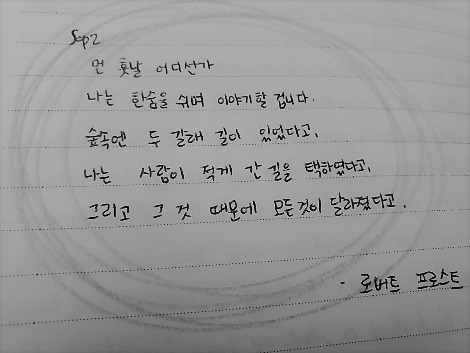 Sep 2
먼 훗날 어디선가
나는 한숨을 쉬며 이야기할 겁니다.
숲속엔 두 갈래 길이 있었다고,
나는 사람이 적게 간 길을 택하였다고,
그리고 그 것 때문에 모든것이 달라졌다고.
- 로버트 프로스트